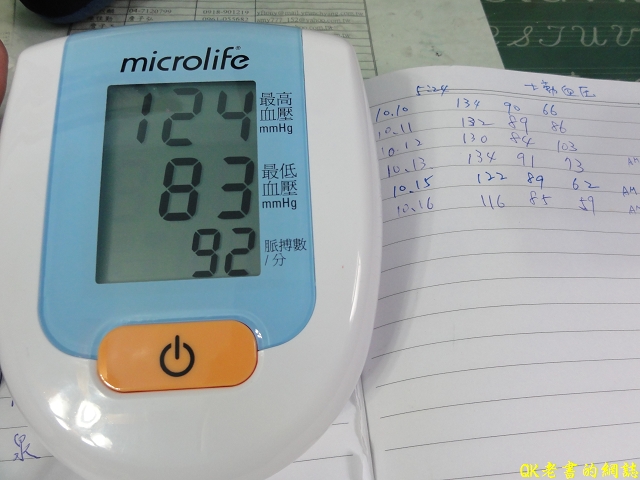 microlife®
124
最高
血壓
mmHg
83
最低
血壓
mmHg
92
脈搏數
/分
10.10 134 90 66
10.11 132 89 86
10.12 130 84 103
10.13 134 91 73
10.15 122 89 62 AM
10.16 116 85 59
QK老書的網誌